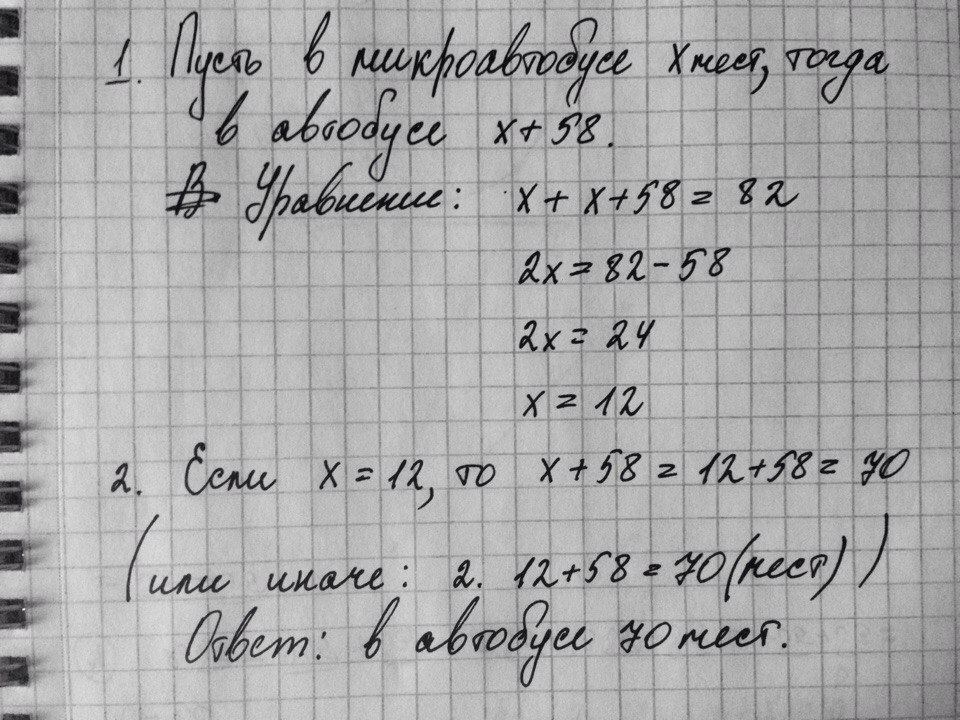 1. Пусть в микроавтобусе x мест, тогда
в автобусе x + 58.
В Уравнение: x + x + 58 = 82
2x = 82 - 58
2x = 24
x = 12
2. Если x = 12, то x + 58 = 12 + 58 = 70
(или иначе: 2. 12 + 58 = 70 (мест))
Ответ: в автобусе 70 мест.